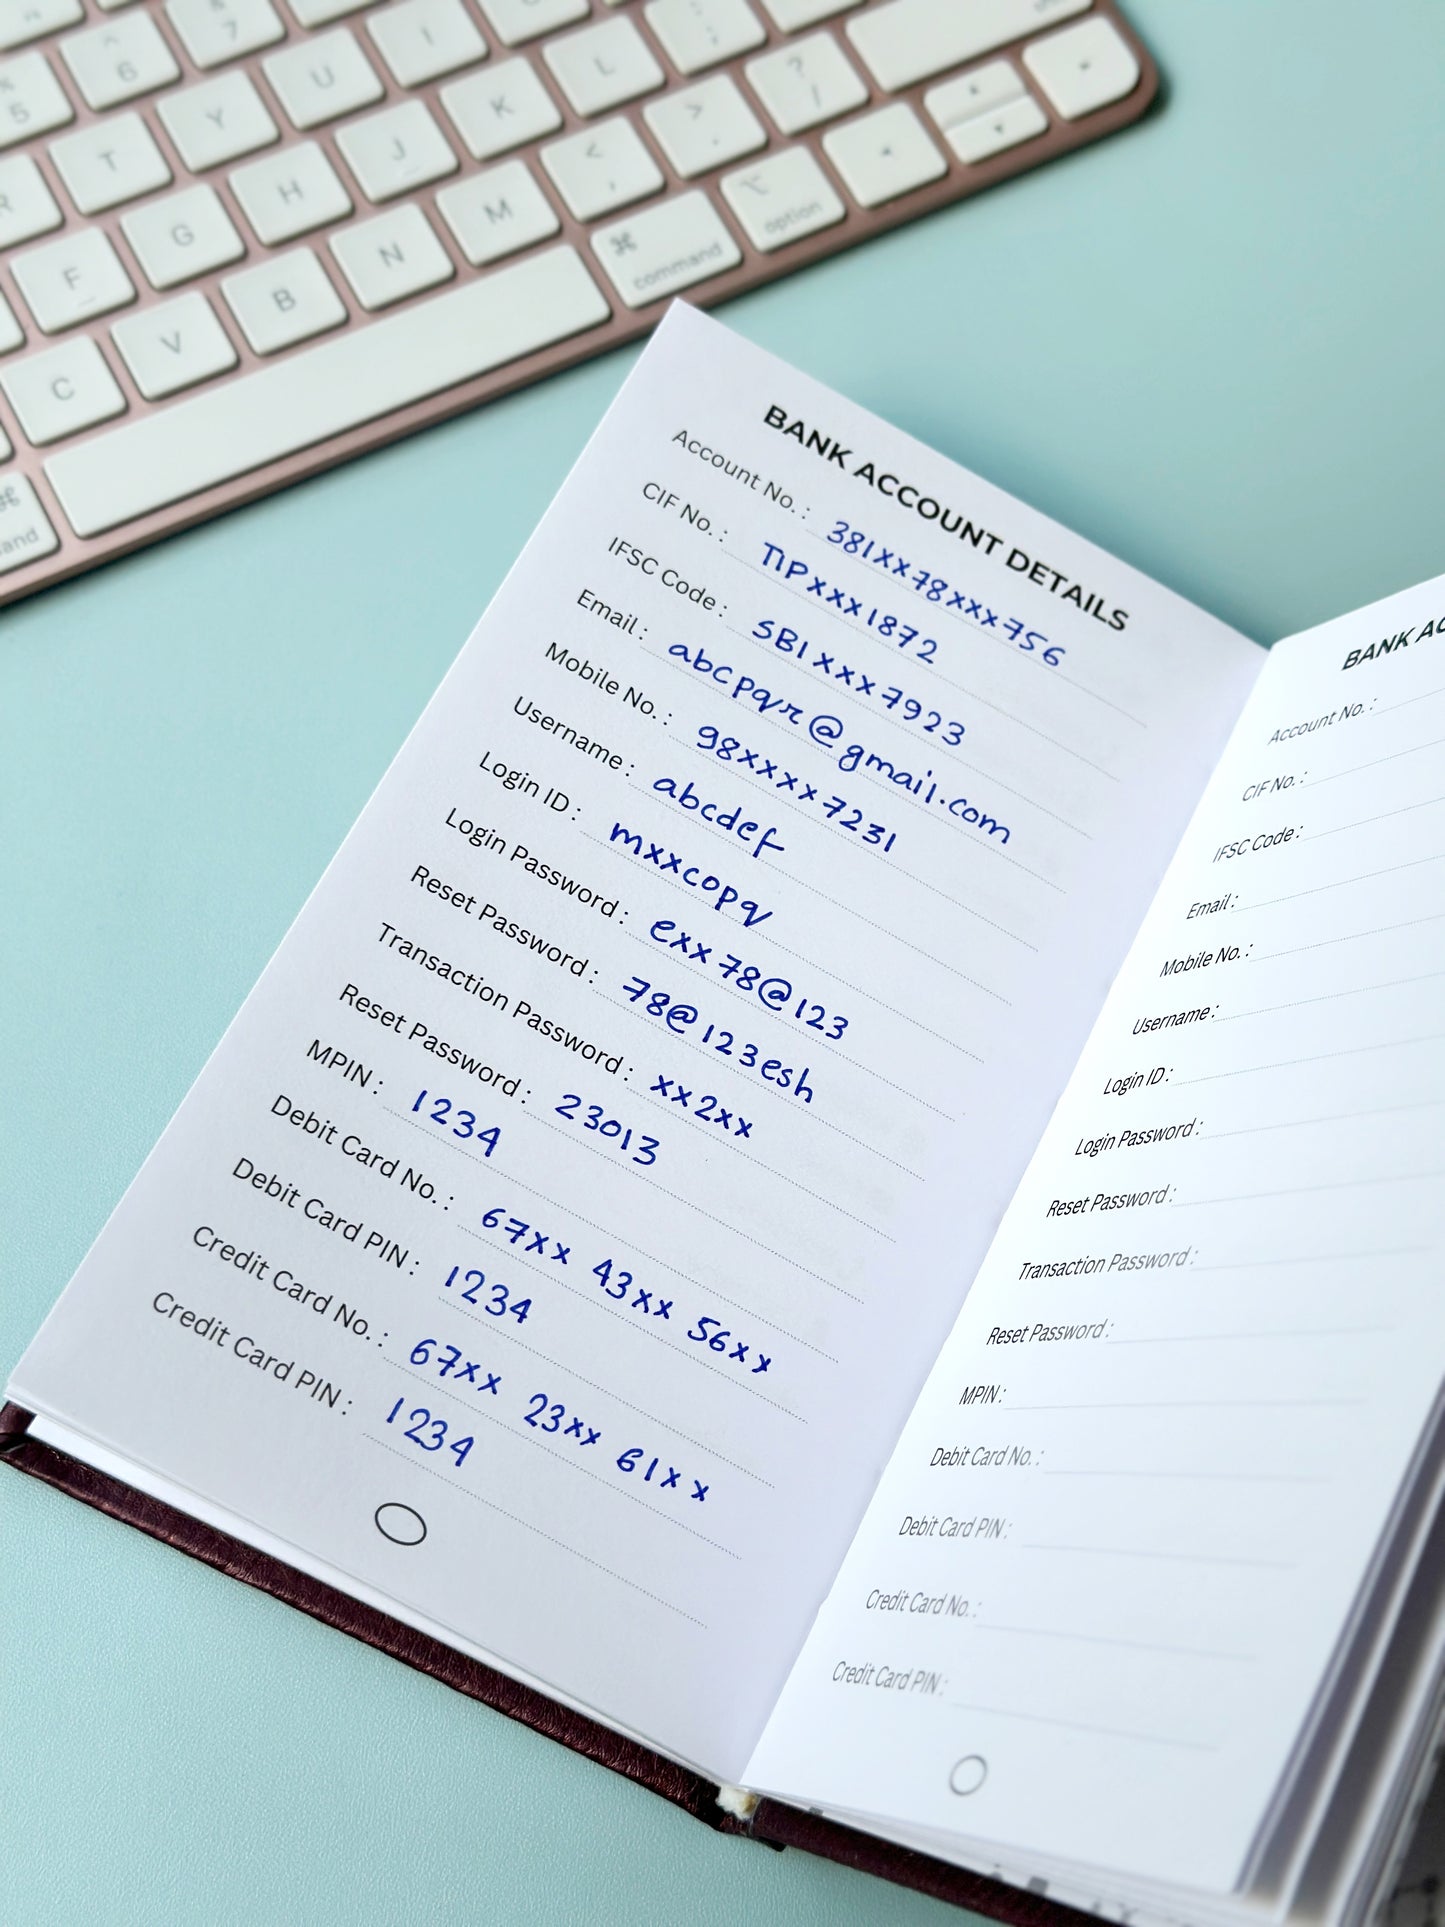 5
^
6
7
T
Y
U
I
:
;
F
G
H
J
K
L
?
/
C
V
B
N
M
<
,
>
.
⌘
command
⌥
option
BANK ACCOUNT DETAILS
Account No. : 381xx78xxx756
CIF No. : TIPxxx1872
IFSC Code : SBIxxx7923
Email : abcpqr@gmail.com
Mobile No. : 98xxxx7231
Username : abcdef
Login ID : mxxcopq
Login Password : exx78@123
Reset Password : 78@123esh
Transaction Password : xx2xx
Reset Password : 23013
MPIN : 1234
Debit Card No. : 67xx 43xx 56xx
Debit Card PIN : 1234
Credit Card No. : 67xx 23xx 61xx
Credit Card PIN : 1234
BANK AC
Account No. :
CIF No. :
IFSC Code :
Email :
Mobile No. :
Username :
Login ID :
Login Password :
Reset Password :
Transaction Password :
Reset Password :
MPIN :
Debit Card No. :
Debit Card PIN :
Credit Card No. :
Credit Card PIN :